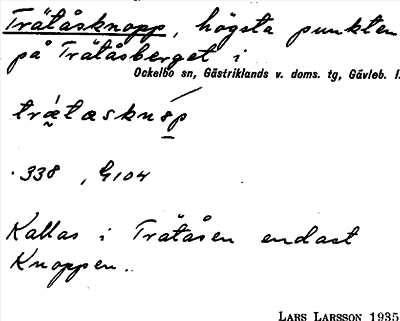 Trätåsknopp, högsta punkten
på Trätåsberget i
Ockelbo sn, Gästriklands v. doms. tg, Gävleb. l.
·338 , G104
Kallas i Trätåsen endast
Knoppen..
LARS LARSSON 1935